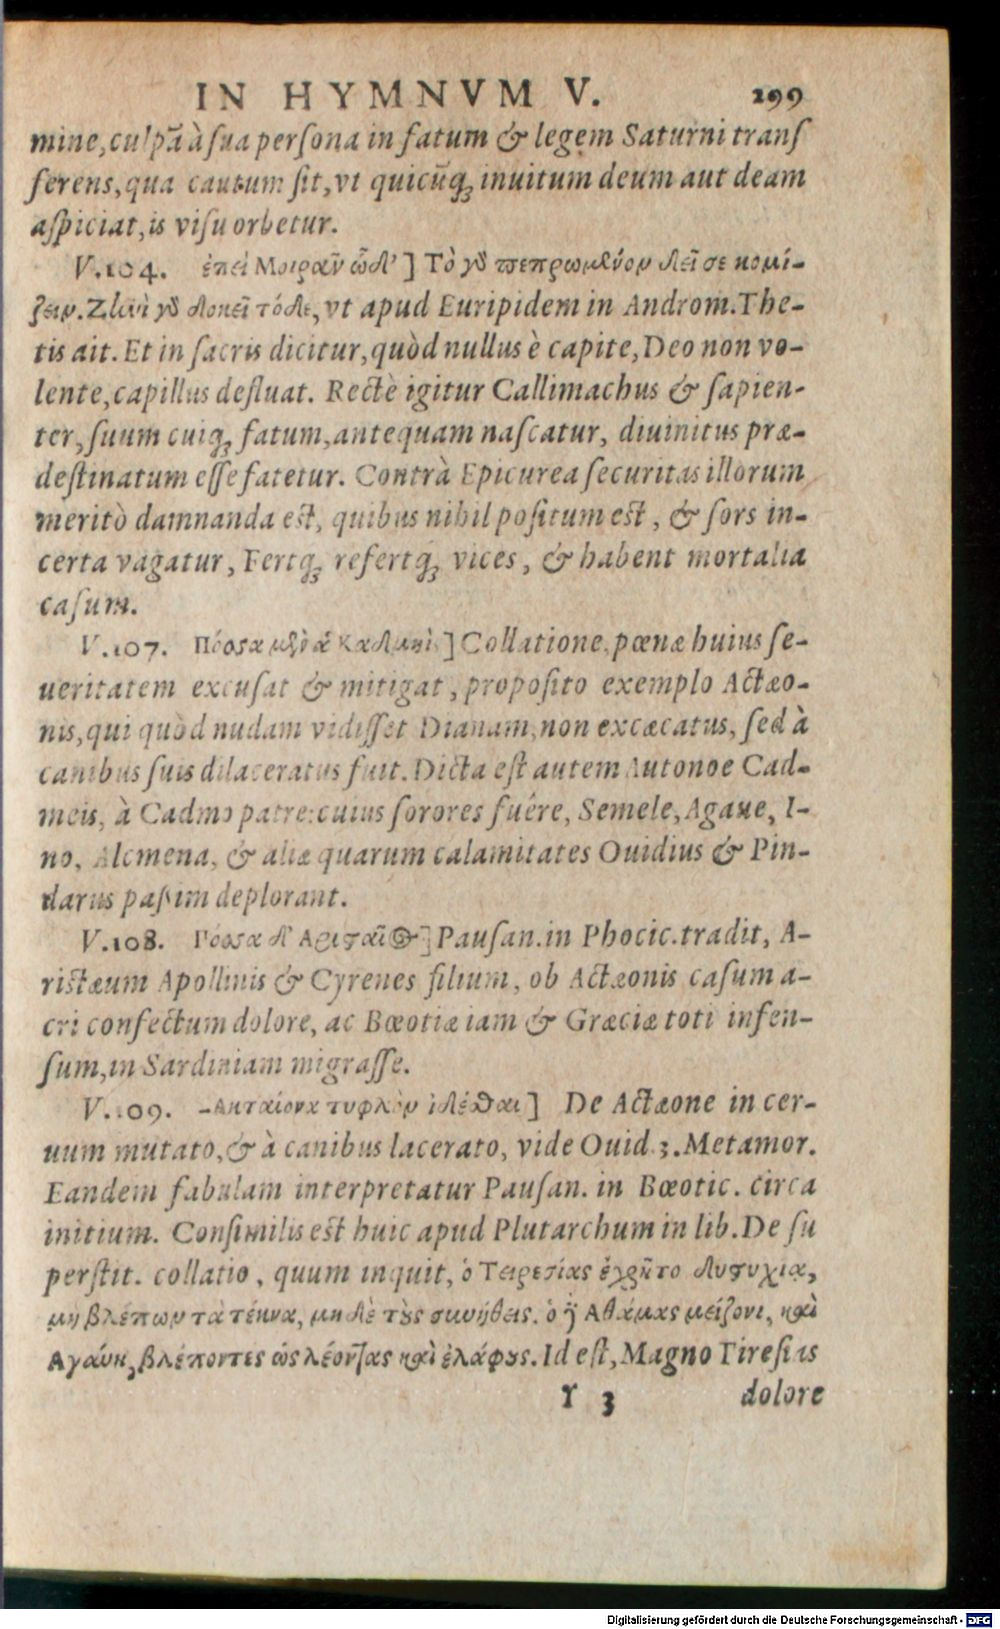 IN HYMNVM V. 199
mine, culpã à sua persona in fatum & legem Saturni trans
ferens, qua cautum sit, vt quicũq; inuitum deum aut deam
aspiciat, is visu orbetur.
V.104. ἐπεὶ Μοιρᾶν ὧδ'] Τὸ γὸ πεπρωμένον δεῖ σε κομί-
ζειν. Ζλωὶ γὸ δοκεῖ τόδε, vt apud Euripidem in Androm. The-
tis ait. Et in sacris dicitur, quòd nullus è capite, Deo non vo-
lente, capillus defluat. Rectè igitur Callimachus & sapien-
ter, suum cuiq; fatum, antequam nascatur, diuinitus præ-
destinatum esse fatetur. Contrà Epicurea securitas illorum
meritò damnanda est, quibus nihil positum est, & sors in-
certa vagatur, Fertq; refertq; vices, & habent mortalia
casum.
V.107. Πόσσα μὲν ἁ Καδμηὶς] Collatione, pœnæ huius se-
ueritatem excusat & mitigat, proposito exemplo Actæo-
nis, qui quòd nudam vidisset Dianam, non excæcatus, sed à
canibus suis dilaceratus fuit. Dicta est autem Autonoe Cad-
meis, à Cadmo patre: cuius sorores fuêre, Semele, Agaue, I-
no, Alcmena, & aliæ quarum calamitates Ouidius & Pin-
darus passim deplorant.
V.108. Πόσσα δ' Ἀρισταῖος] Pausan. in Phocic. tradit, A-
ristæum Apollinis & Cyrenes filium, ob Actæonis casum a-
cri confectum dolore, ac Bœotiæ iam & Græciæ toti infen-
sum, in Sardiniam migrasse.
V.109. -Ακταίονα τυφλὸν ἰδέσθαι] De Actæone in cer-
uum mutato, & à canibus lacerato, vide Ouid. 3. Metamor.
Eandem fabulam interpretatur Pausan. in Bœotic. circa
initium. Consimilis est huic apud Plutarchum in lib. De su
perstit. collatio, quum inquit, ὁ Τειρεσίας ἐχρῆτο δυστυχία,
μὴ βλέπων τὰ τέκνα, μηδὲ τοὺς συνήθεις. ὁ δὲ Αθάμας μείζονι, καὶ
Αγαύη, βλέποντες ὡς λέοντας καὶ ἐλάφους. Id est, Magno Tiresias
Y 3 dolore
Digitalisierung gefördert durch die Deutsche Forschungsgemeinschaft - DFG